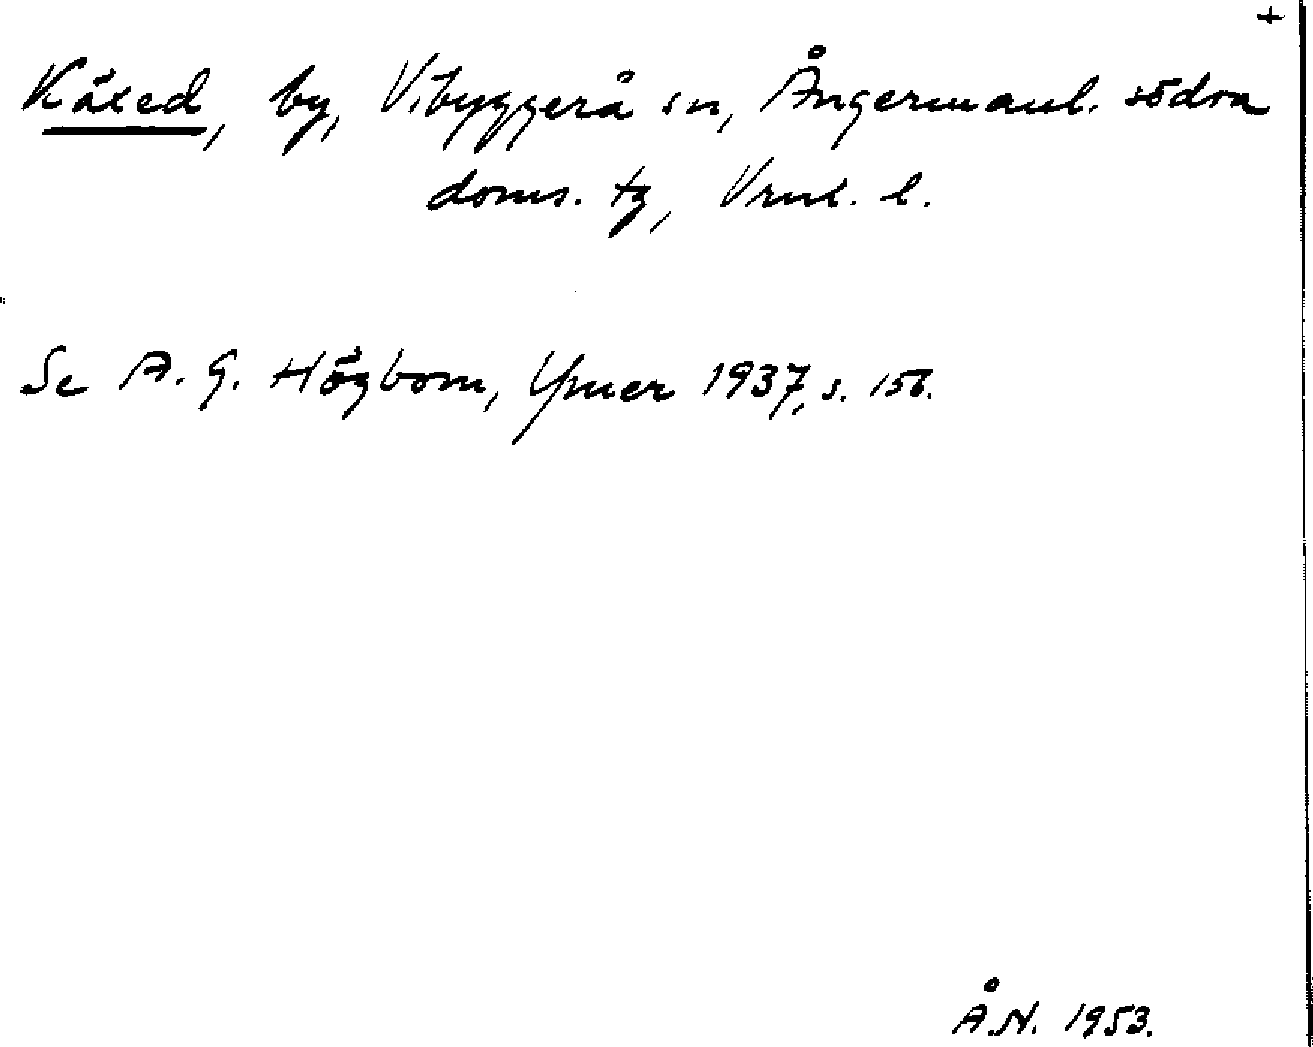 +
Käxed, by, Vibyggerå sn, Ångermanl. södra
doms. tg, Vrnl. l.
Se A. G. Högbom, Ymer 1937, s. 156.
Å.N. 1953.